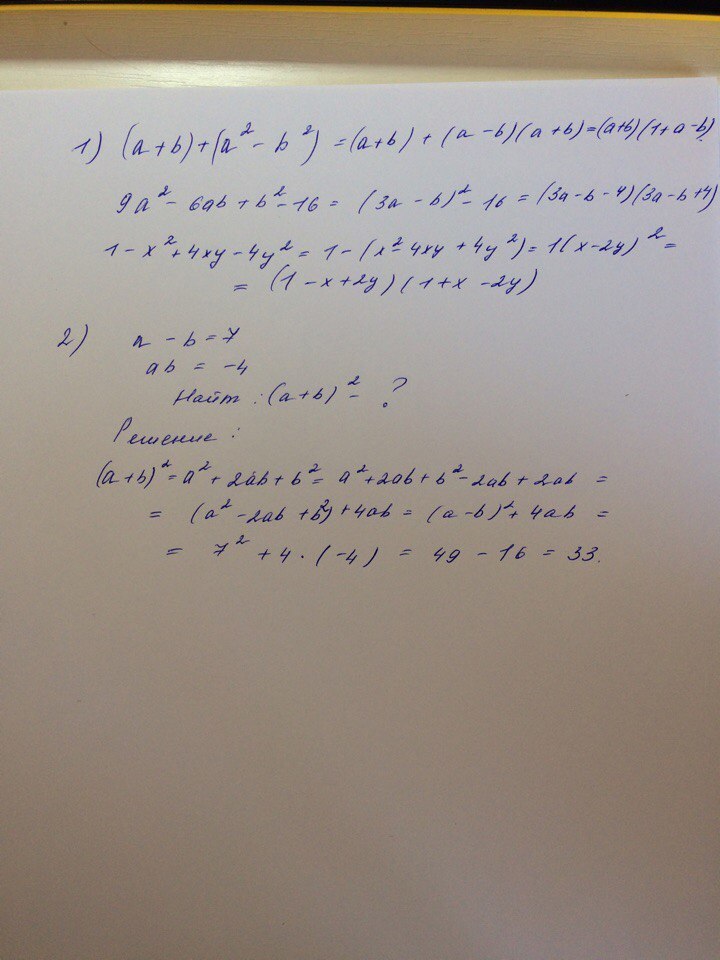 1) (a+b)+(a²-b²) = (a+b) + (a-b)(a+b)=(a+b)(1+a-b)
9a²-6ab+b²-16 = (3a-b)²-16 = (3a-b-4)(3a-b+4)
1-x²+4xy-4y² = 1-(x²-4xy+4y²)=1(x-2y)²=
= (1-x+2y)(1+x-2y)
2) a-b=7
ab = -4
Найт : (a+b)² - ?
Решение :
(a+b)²=a²+2ab+b²= a²+2ab+b²-2ab+2ab =
= (a²-2ab+b²)+4ab = (a-b)²+4ab =
= 7²+4·(-4) = 49-16 = 33.